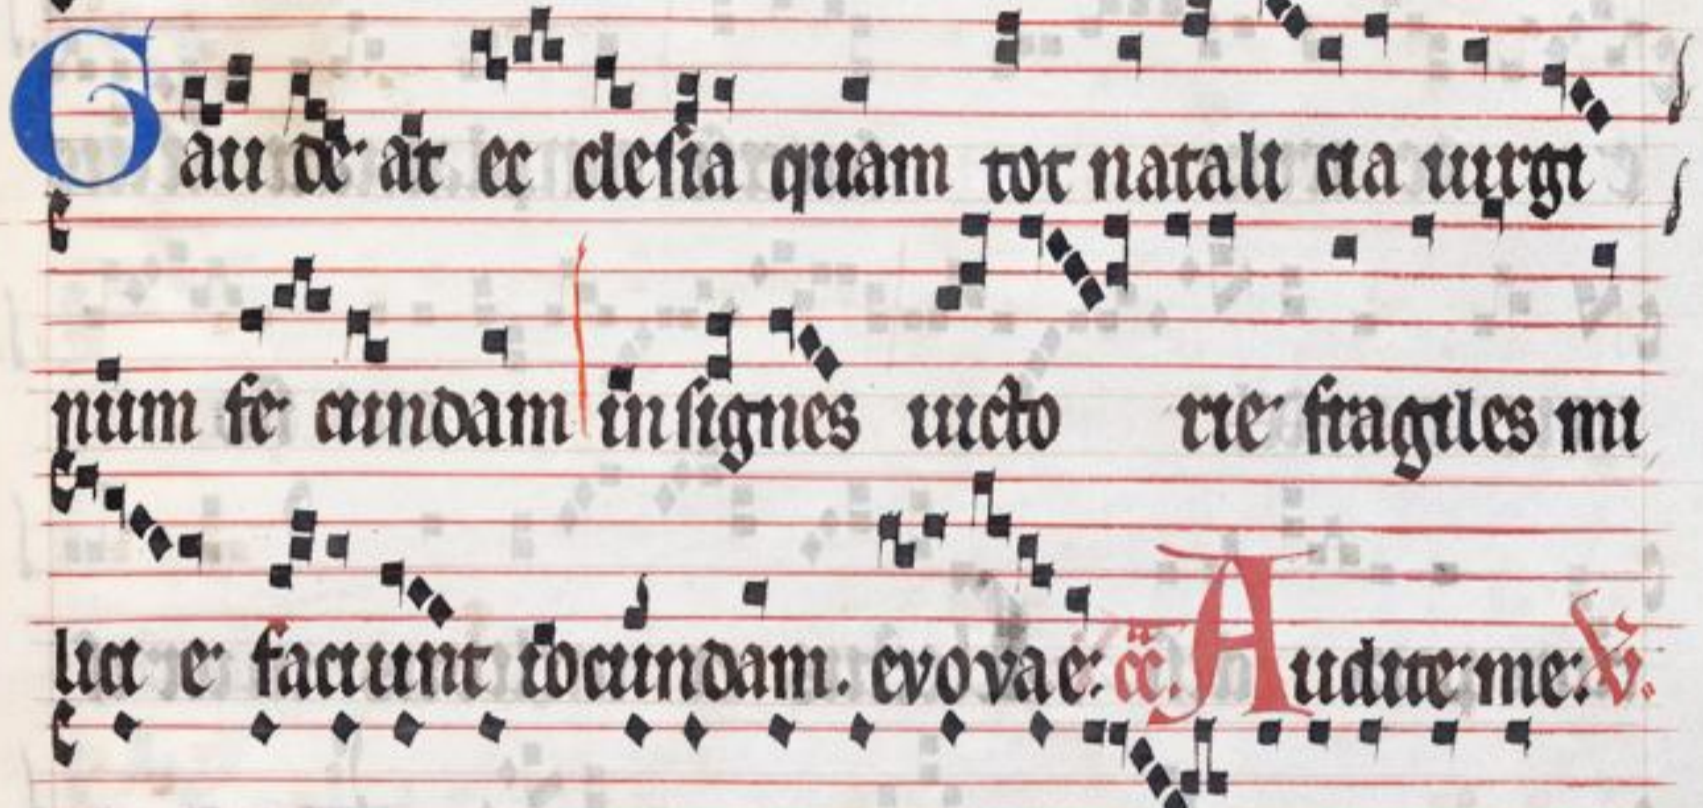 Gau de at ec clesia quam tot natali cia uirgi
num fe cundam insignes uicto rie fragiles mi
lici e faciunt iocundam. evovae: Audite me: V.